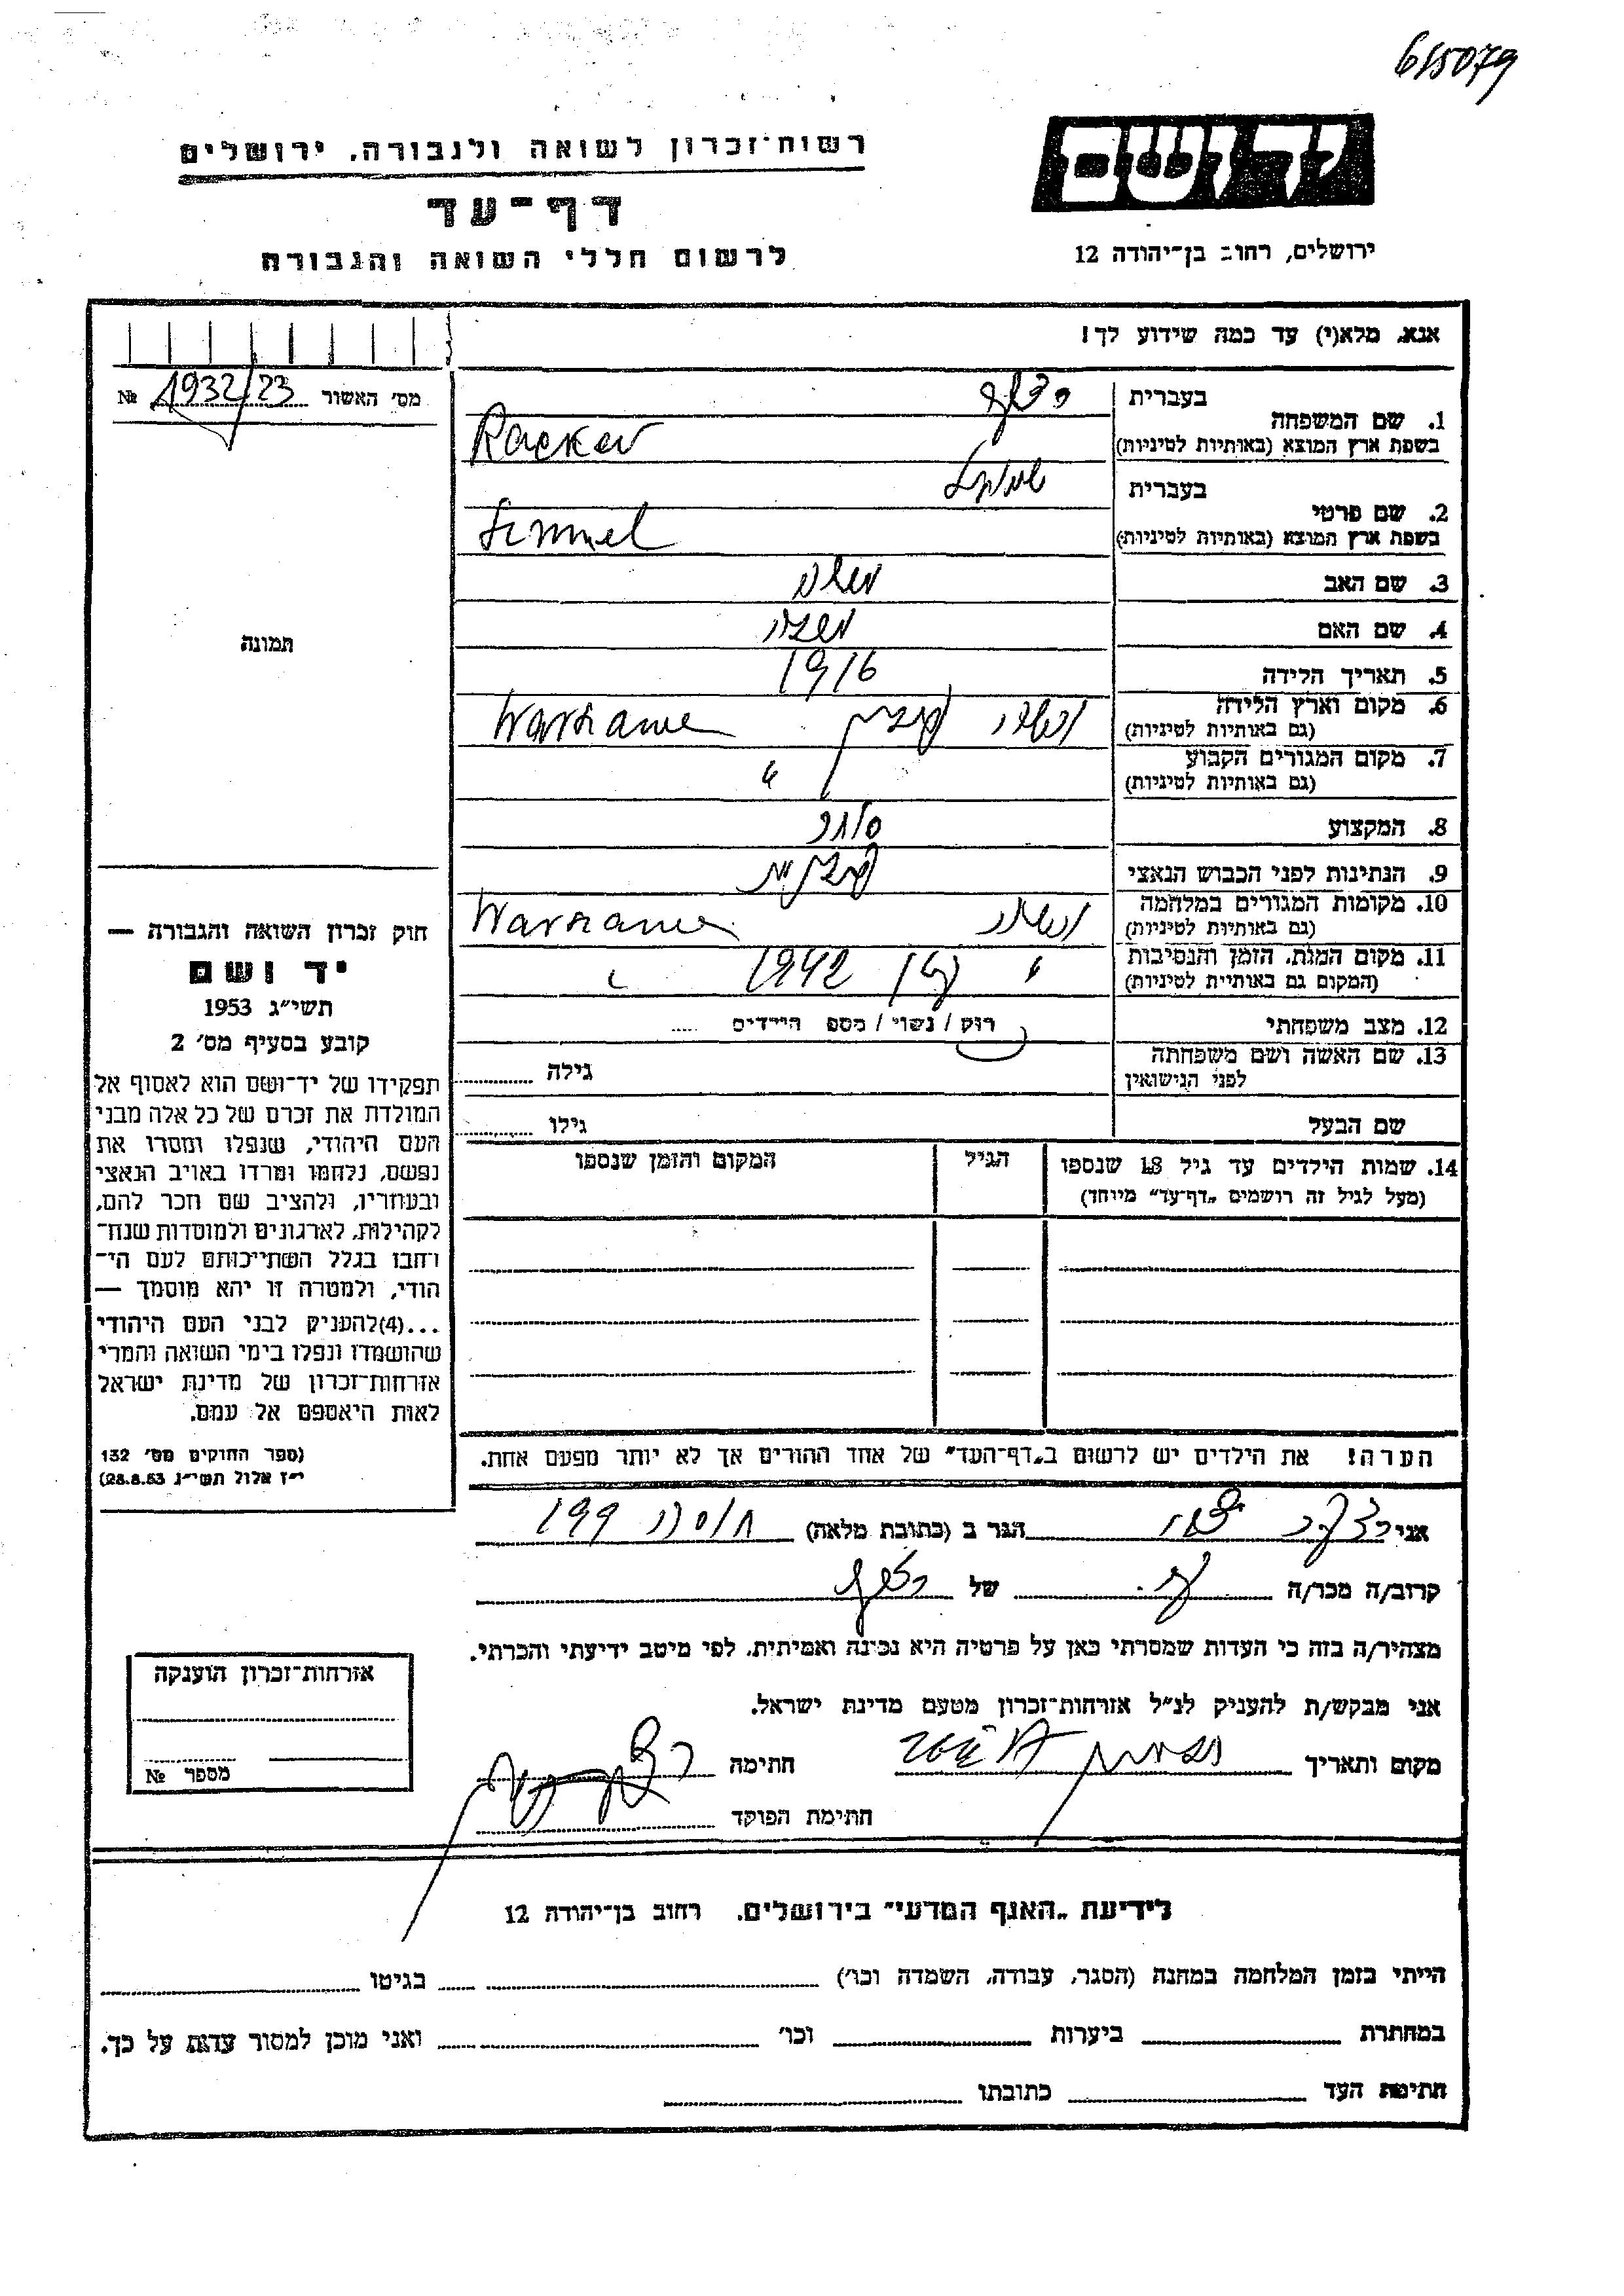 615079
יד ושם
רשות־זכרון לשואה ולגבורה, ירושלים
דף־עד
לרשום חללי השואה והגבורה
ירושלים, רחוב בן־יהודה 12
אנא, מלא(י) עד כמה שידוע לך!
מס׳ האשור 1932/23 №
תמונה
1. שם המשפחה בעברית
בשפת ארץ המוצא (באותיות לטיניות) Racker
2. שם פרטי בעברית שמואל
בשפת ארץ המוצא (באותיות לטיניות)
3. שם האב משה
4. שם האם
5. תאריך הלידה 1916
6. מקום וארץ הלידה ורשה פולין Warszawa
(גם באותיות לטיניות)
7. מקום המגורים הקבוע "
(גם באותיות לטיניות)
8. המקצוע סוחר
9. הנתינות לפני הכבוש הנאצי פולנית
10. מקומות המגורים במלחמה ורשה Warszawa
(גם באותיות לטיניות)
11. מקום המות, הזמן והנסיבות " 1942
(המקום גם באותיות לטיניות)
12. מצב משפחתי רוק / נשוי / מספ הילדים
13. שם האשה ושם משפחתה
לפני הנישואין גילה
שם הבעל גילו
14. שמות הילדים עד גיל 18 שנספו הגיל המקום והזמן שנספו
(מעל לגיל זה רושמים „דף־עד״ מיוחד)
הערה! את הילדים יש לרשום ב„דף־העד״ של אחד ההורים אך לא יותר מפעם אחת.
חוק זכרון השואה והגבורה —
יד ושם
תשי״ג 1953
קובע בסעיף מס׳ 2
תפקידו של יד־ושם הוא לאסוף אל
המולדת את זכרם של כל אלה מבני
העם היהודי, שנפלו ומסרו את
נפשם, נלחמו ומרדו באויב הנאצי
ובעוזריו, ולהציב שם וזכר להם,
לקהילות, לארגונים ולמוסדות שנח־
רחבו בגלל השתייכותם לעם הי־
הודי, ולמטרה זו יהא מוסמך —
...(4)להעניק לבני העם היהודי
שהושמדו ונפלו בימי השואה והמרי
אזרחות־זכרון של מדינת ישראל
לאות היאספם אל עמם.
(ספר החוקים מס׳ 132
י״ז אלול תשי״ג 28.8.53)
אני הגר ב (כתובת מלאה) 199
קרוב/ה מכר/ה של
מצהיר/ה בזה כי העדות שמסרתי כאן על פרטיה היא נכונה ואמיתית, לפי מיטב ידיעתי והכרתי.
אני מבקש/ת להעניק לנ״ל אזרחות־זכרון מטעם מדינת ישראל.
מקום ותאריך חתימה
חתימת הפוקד
אזרחות־זכרון הוענקה
מספר №
לידיעת „האגף המדעי״ בירושלים, רחוב בן־יהודה 12
הייתי בזמן המלחמה במחנה (הסגר, עבודה, השמדה וכו׳) בגיטו
במחתרת ביערות וכו׳ ואני מוכן למסור עדות על כך.
חתימת העד כתובתו